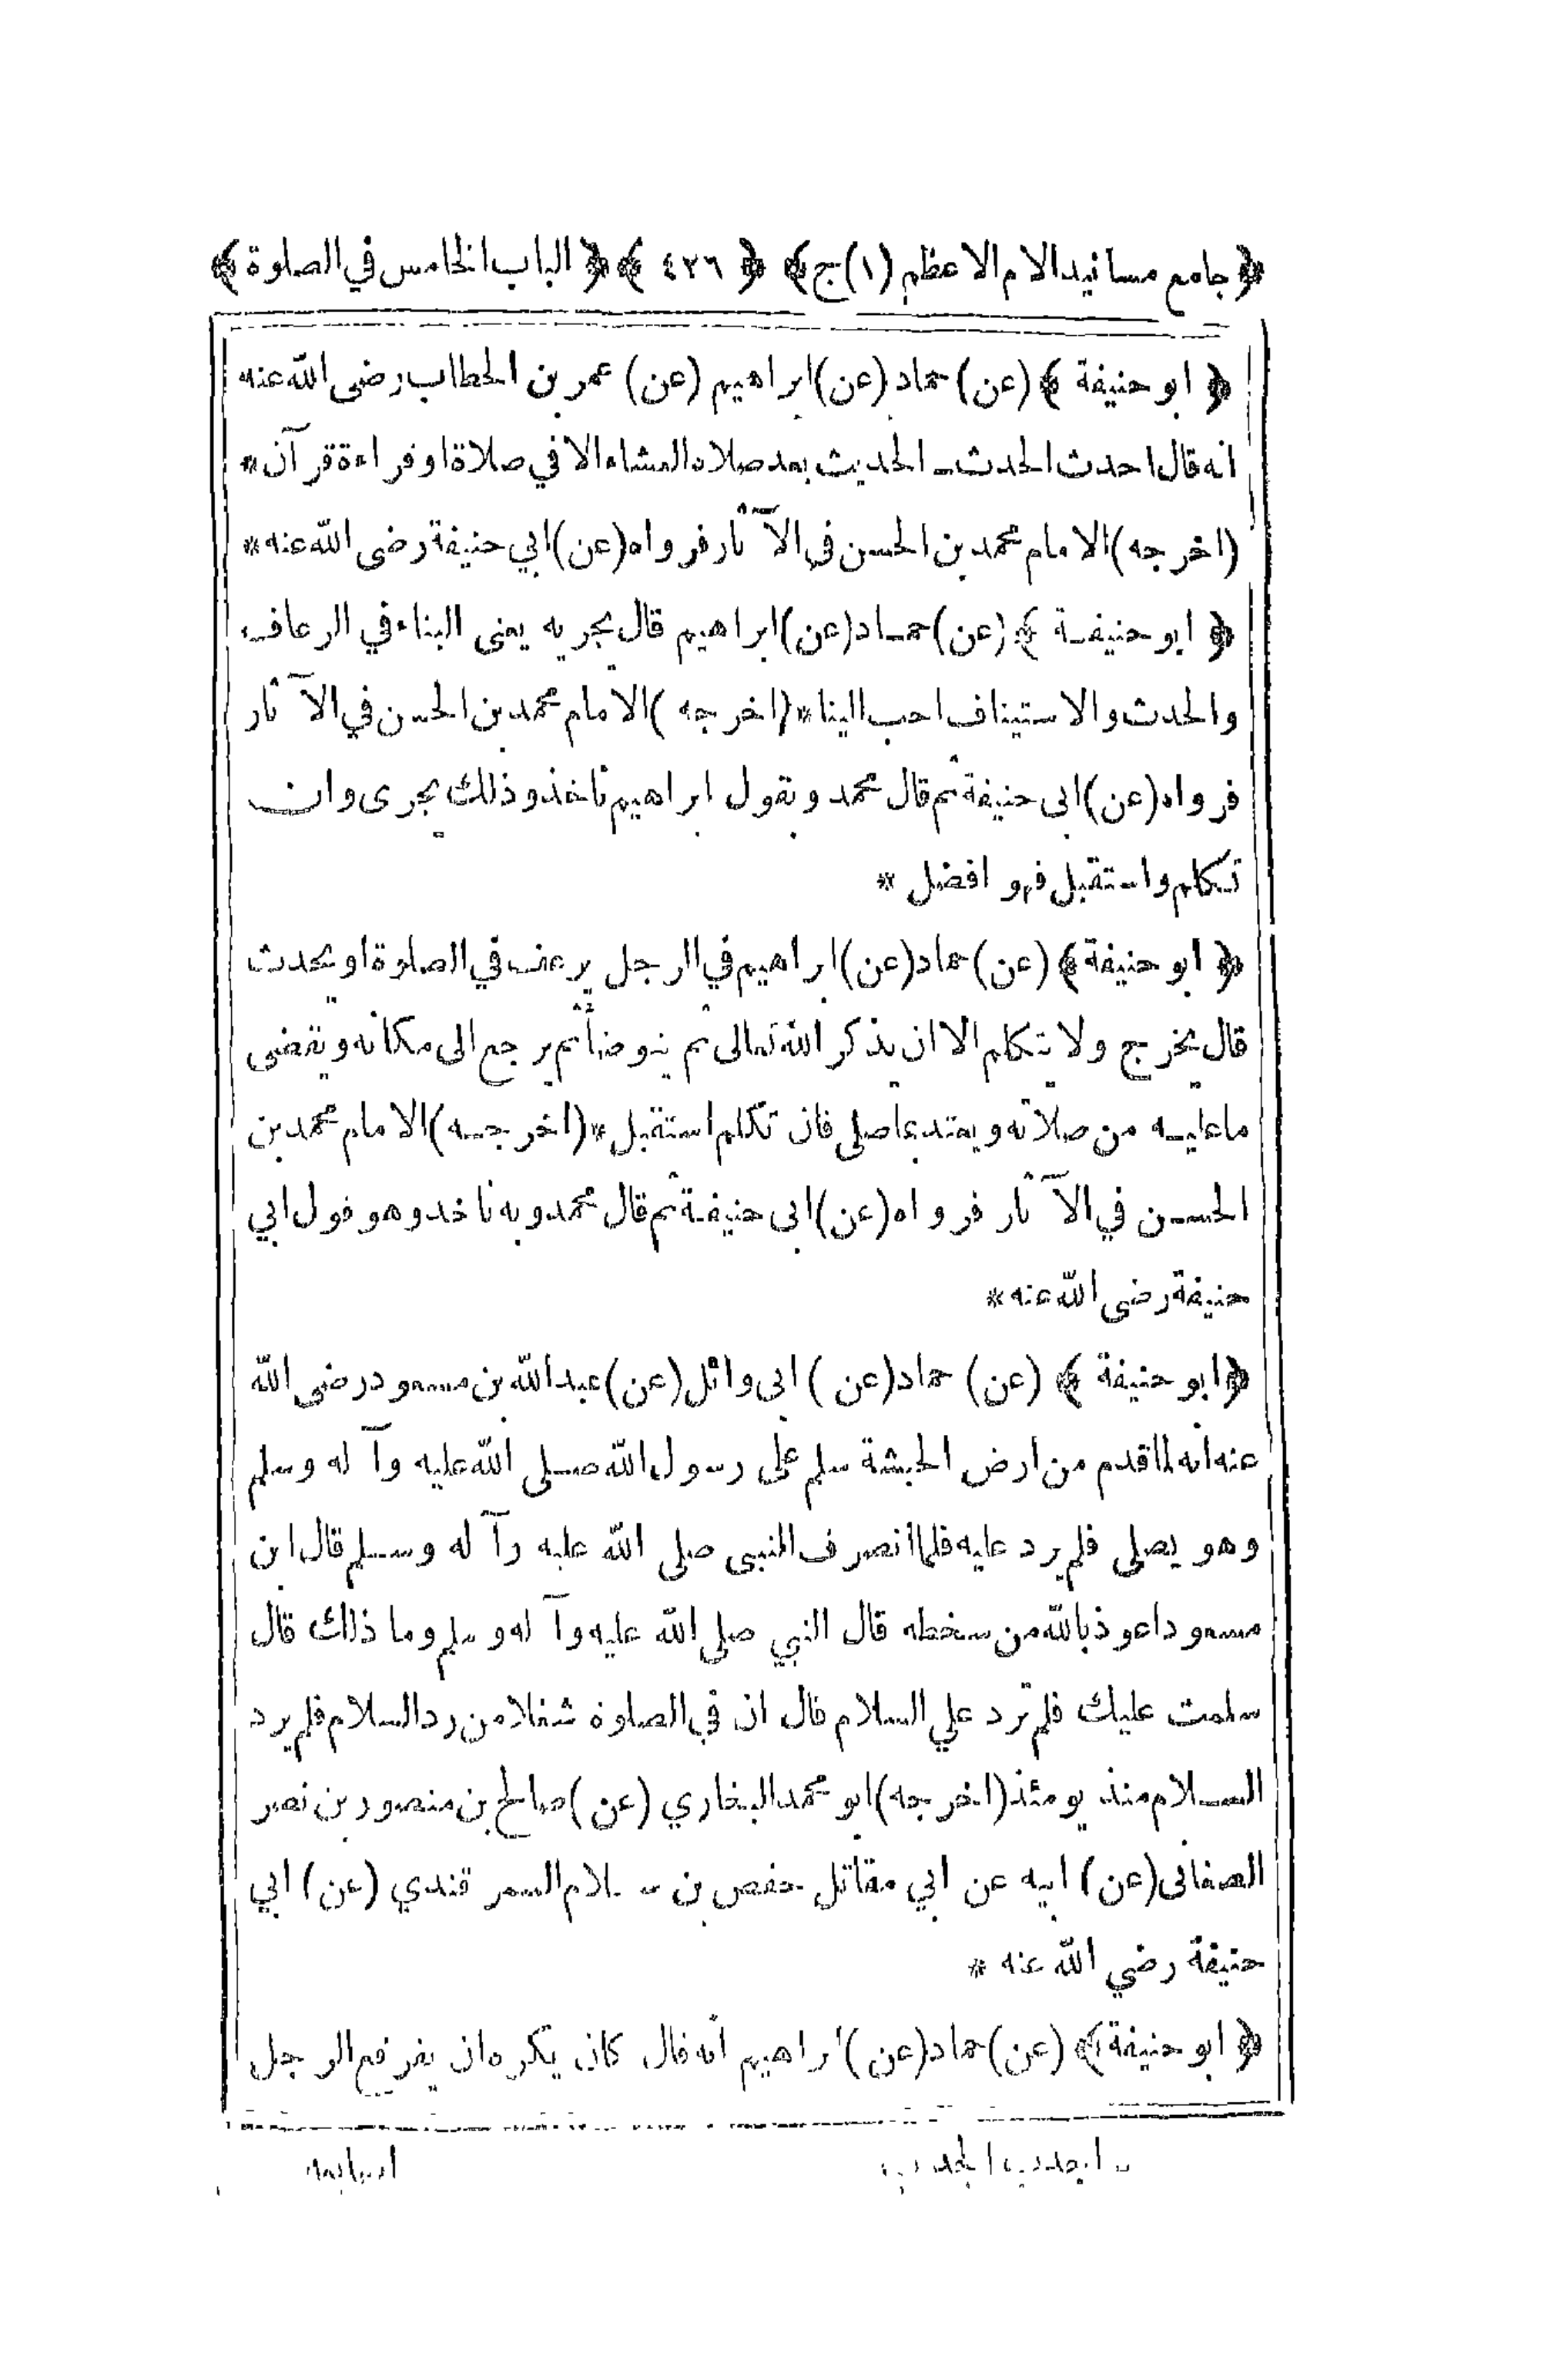 ﴿ جامع مسانيد الامام الاعظم (١) ج ﴾ ﴿ ٤٢٦ ﴾ ﴿ الباب الخامس في الصلوة ﴾
﴿ ابو حنيفة ﴾ (عن) حماد (عن) ابراهيم (عن) عمر بن الخطاب رضى الله عنه
انه قال احدث الحدث الحديث بعد صلاة العشاء الا في صلاة او قراءة قرآن *
(اخرجه) الامام محمد بن الحسن في الآثار فرواه (عن) ابي حنيفة رضى الله عنه *
﴿ ابو حنيفة ﴾ (عن) حماد (عن) ابراهيم قال يجزيه يعنى البناء في الرعاف
والحدث والاستيناف احب الينا * (اخرجه) الامام محمد بن الحسن في الآثار
فرواه (عن) ابى حنيفة ثم قال محمد وبقول ابراهيم ناخذ وذلك يجزى وان
تكلم واستقبل فهو افضل *
﴿ ابو حنيفة ﴾ (عن) حماد (عن) ابراهيم في الرجل يرعف في الصلوة او يحدث
قال يخرج ولا يتكلم الا ان يذكر الله تعالى ثم يتوضأ ثم يرجع الى مكانه ويقضى
ما عليه من صلاته ويعتد بما صلى فان تكلم استقبل * (اخرجه) الامام محمد بن
الحسن في الآثار فرواه (عن) ابى حنيفة ثم قال محمد وبه ناخذ وهو قول ابي
حنيفة رضى الله عنه *
﴿ ابو حنيفة ﴾ (عن) حماد (عن) ابى وائل (عن) عبد الله بن مسعود رضى الله
عنه انه لما قدم من ارض الحبشة سلم على رسول الله صلى الله عليه وآله وسلم
وهو يصلى فلم يرد عليه فلما أنصرف النبى صلى الله عليه وآله وسلم قال ابن
مسعود اعوذ بالله من سخطه قال النبي صلى الله عليه وآله وسلم وما ذلك قال
سلمت عليك فلم ترد علي السلام قال ان في الصلوة شغلا من رد السلام فلم يرد
السلام منذ يومئذ (اخرجه) ابو محمد البخاري (عن) صالح بن منصور بن نصر
الصغانى (عن) ابيه عن ابي مقاتل حفص بن سلام السمرقندي (عن) ابي
حنيفة رضي الله عنه *
﴿ ابو حنيفة ﴾ (عن) حماد (عن) ابراهيم انه قال كان يكره ان يفرقع الرجل
اصابعه